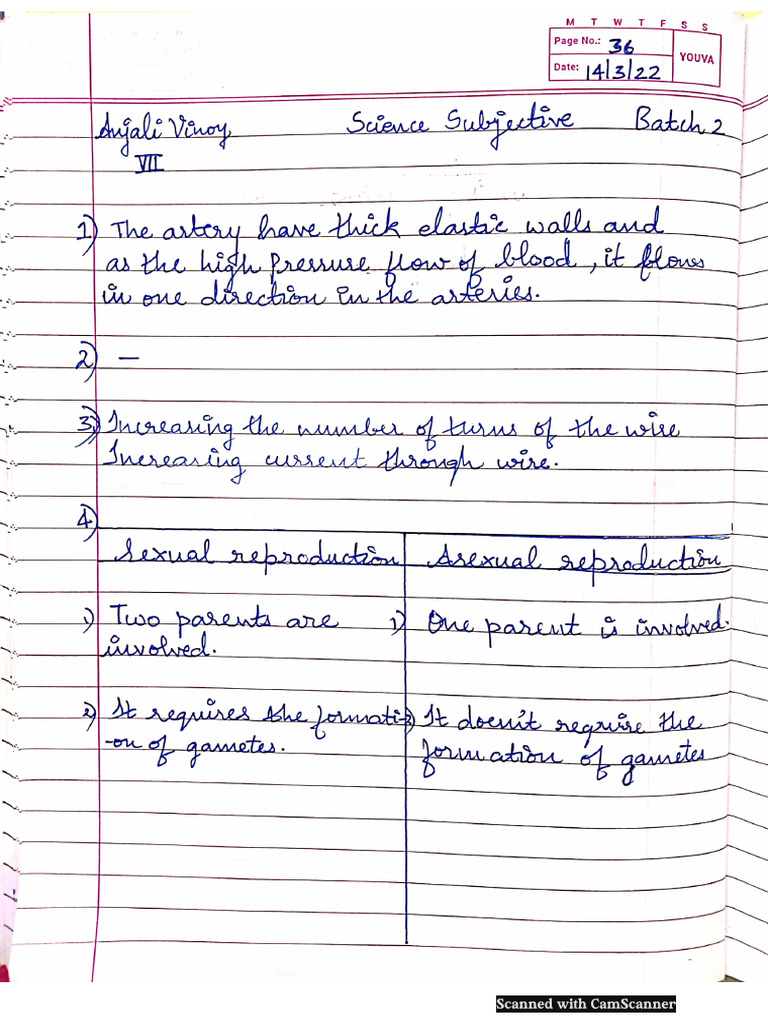 M T W T F S S
Page No.: 36
YOUVA
Date: 14/3/22
Anjali Vinoy Science Subjective Batch 2
VII
1) The artery have thick elastic walls and
as the high pressure flow of blood, it flows
in one direction in the arteries.
2) —
3) Increasing the number of turns of the wire
Increasing current through wire.
4)
Sexual reproduction Asexual reproduction
1) Two parents are 1) One parent is involved.
involved.
2) It requires the formati- 2) It doesn't require the
-on of gametes. formation of gametes
Scanned with CamScanner